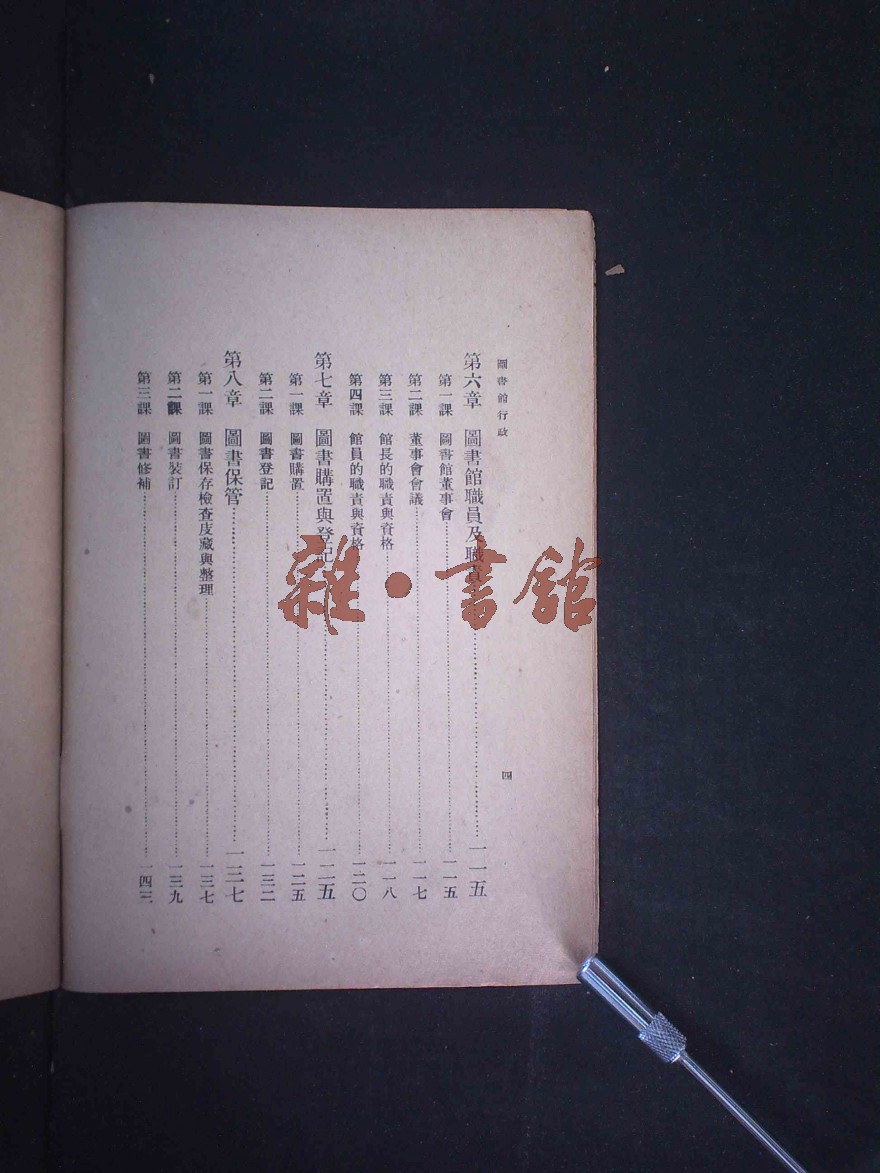 圖書館行政
四
第六章 圖書館職員及職責 一一五
第一課 圖書館董事會 一一五
第二課 董事會會議 一一七
第三課 館長的職責與資格 一一八
第四課 館員的職責與資格 一二〇
第七章 圖書購置與登記 一二五
第一課 圖書購置 一二五
第二課 圖書登記 一三二
第八章 圖書保管 一三七
第一課 圖書保存檢查庋藏與整理 一三七
第二課 圖書裝訂 一三九
第三課 圖書修補 一四三
雜·書館